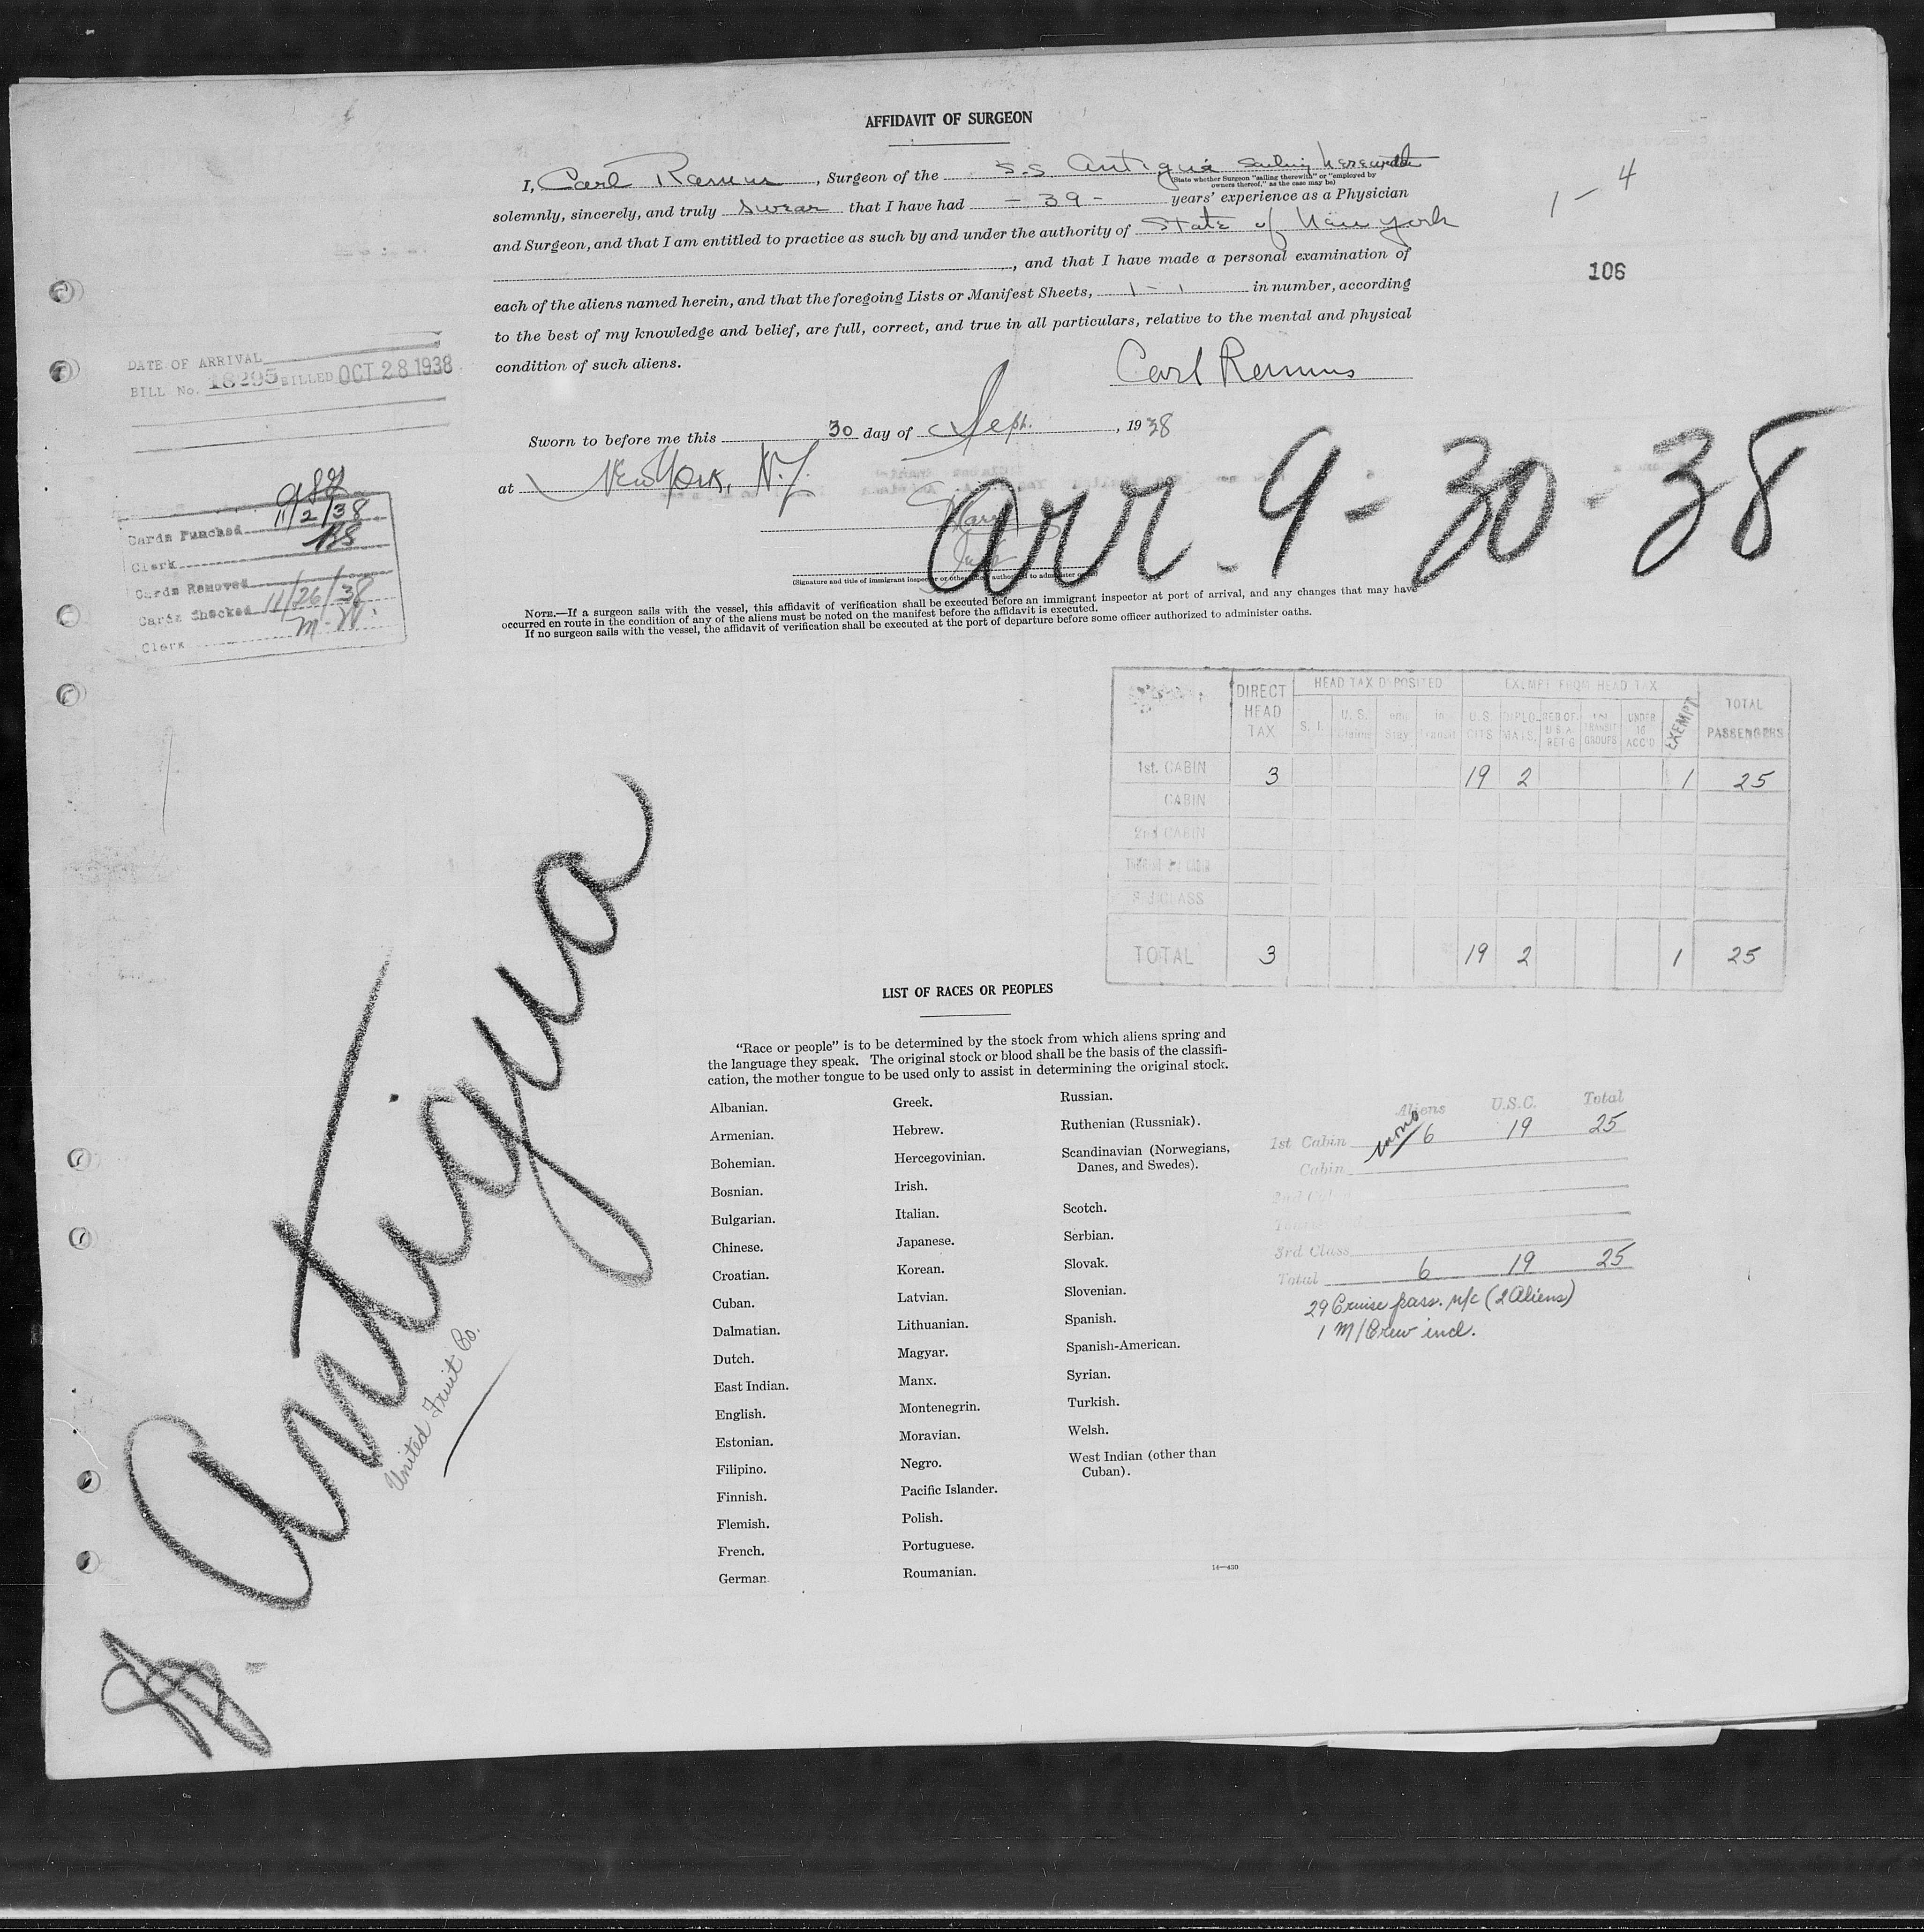 AFFIDAVIT OF SURGEON
I, Carl Ramus, Surgeon of the S.S Antigua Sailing herewith
(State whether Surgeon "sailing therewith" or "employed by
owners thereof," as the case may be)
solemnly, sincerely, and truly swear that I have had - 39 - years' experience as a Physician
and Surgeon, and that I am entitled to practice as such by and under the authority of State of New York
, and that I have made a personal examination of
each of the aliens named herein, and that the foregoing Lists or Manifest Sheets, 1 - 1 in number, according
to the best of my knowledge and belief, are full, correct, and true in all particulars, relative to the mental and physical
condition of such aliens.
Carl Ramus
1 - 4
106
DATE OF ARRIVAL
BILL No. 18295 BILLED OCT 28 1938
Sworn to before me this 30 day of Sept., 1938
at New York, N.Y.
arr. 9-30-38
(Signature and title of immigrant inspector or other officer authorized to administer oaths)
Cards Punched 11/2/38
Clerk
Cards Removed
Cards Checked 11/26/38
Clerk M. W.
NOTE.—If a surgeon sails with the vessel, this affidavit of verification shall be executed before an immigrant inspector at port of arrival, and any changes that may have
occurred en route in the condition of any of the aliens must be noted on the manifest before the affidavit is executed.
If no surgeon sails with the vessel, the affidavit of verification shall be executed at the port of departure before some officer authorized to administer oaths.
DIRECT HEAD TAX
HEAD TAX DEPOSITED
EXEMPT FROM HEAD TAX
TOTAL PASSENGERS
S. I. U. S. in Transit U.S. CITS DIPLO-MATS. IN TRANSIT GROUPS UNDER 16 ACC'D EXEMPT
1st. CABIN 3 19 2 1 25
CABIN
2nd CABIN
3rd CLASS
TOTAL 3 19 2 1 25
Antigua
United Fruit Co.
LIST OF RACES OR PEOPLES
"Race or people" is to be determined by the stock from which aliens spring and
the language they speak. The original stock or blood shall be the basis of the classifi-
cation, the mother tongue to be used only to assist in determining the original stock.
Albanian.
Armenian.
Bohemian.
Bosnian.
Bulgarian.
Chinese.
Croatian.
Cuban.
Dalmatian.
Dutch.
East Indian.
English.
Estonian.
Filipino.
Finnish.
Flemish.
French.
German
Greek.
Hebrew.
Hercegovinian.
Irish.
Italian.
Japanese.
Korean.
Latvian.
Lithuanian.
Magyar.
Manx.
Montenegrin.
Moravian.
Negro.
Pacific Islander.
Polish.
Portuguese.
Roumanian.
Russian.
Ruthenian (Russniak).
Scandinavian (Norwegians,
Danes, and Swedes).
Scotch.
Serbian.
Slovak.
Slovenian.
Spanish.
Spanish-American.
Syrian.
Turkish.
Welsh.
West Indian (other than
Cuban).
14—430
Aliens U.S.C. Total
1st Cabin 6 19 25
Cabin
3rd Class
Total 6 19 25
29 Cruise pass. n/c (2 Aliens)
1 M/Crew incl.